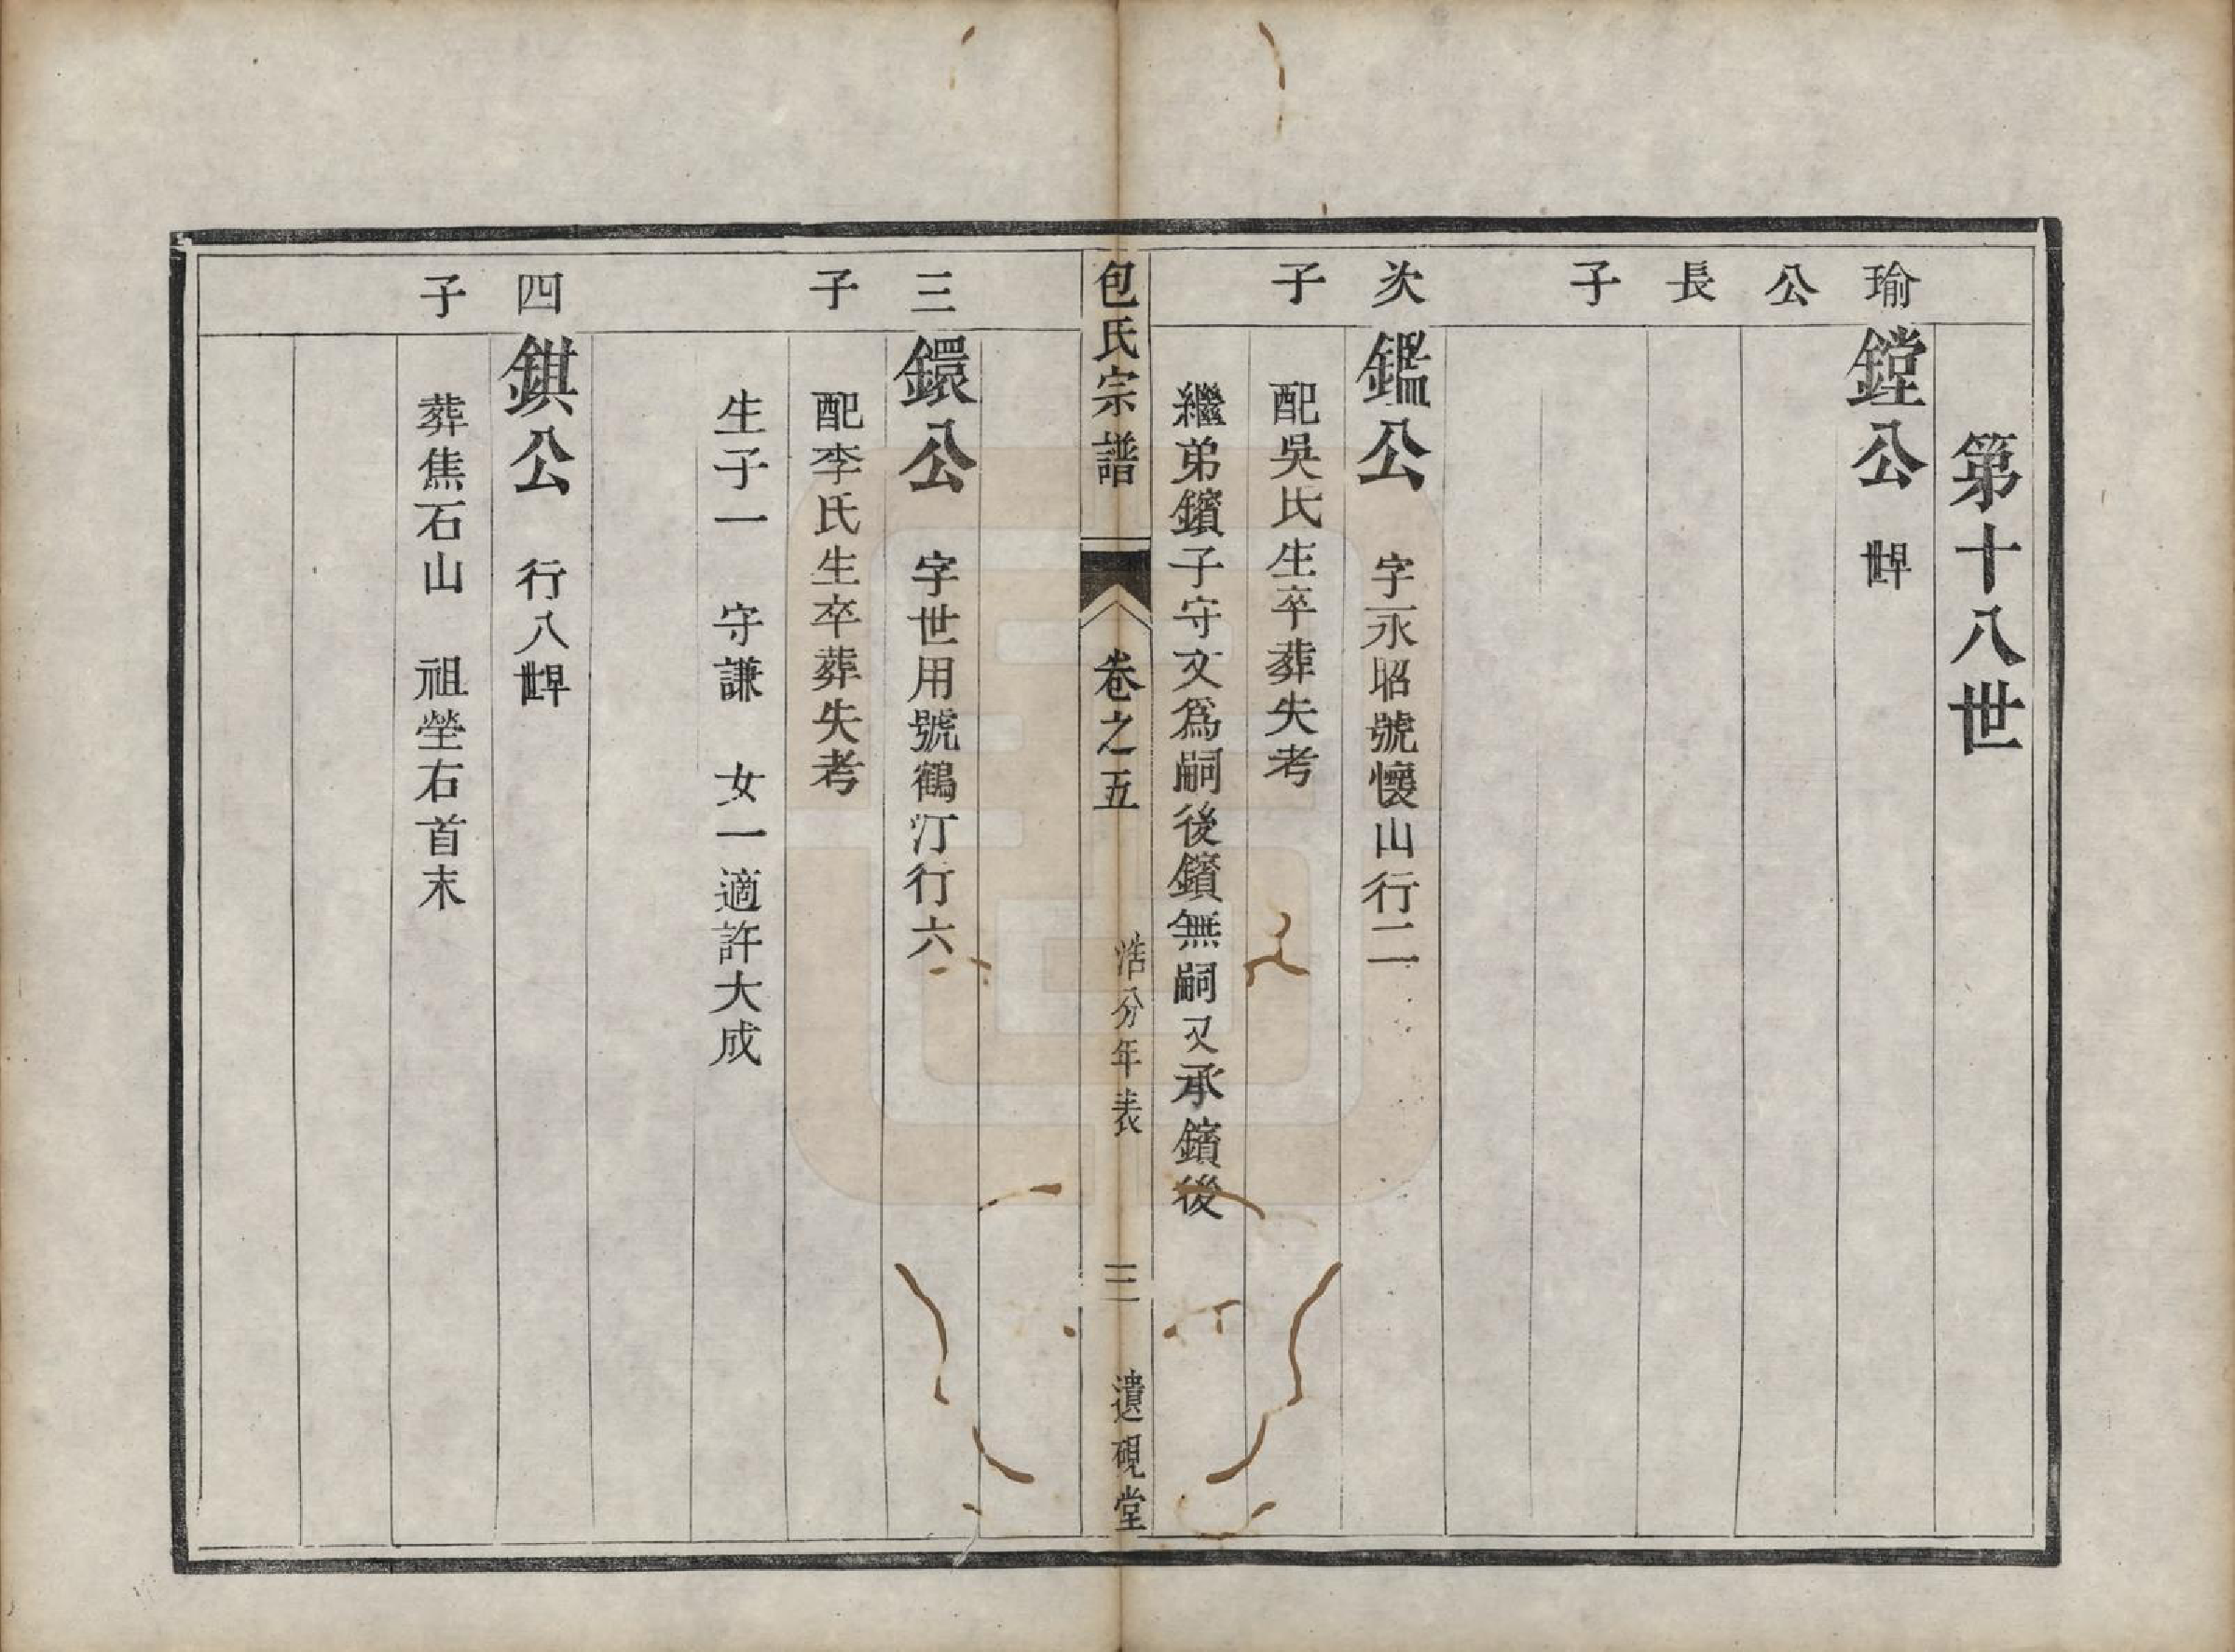 第十八世
瑜公長子
鏜公　𠦜
次子
鑑公　字永昭號懷山行二
配吳氏生卒葬失考
繼弟鑌子守文爲嗣後鑌無嗣又承鑌後
包氏宗譜　卷之五　浩分年表　三　遺硯堂
三子
鐶公　字世用號鶴汀行六
配李氏生卒葬失考
生子一　守謙　女一適許大成
四子
錤公　行八
葬焦石山　祖塋右首末